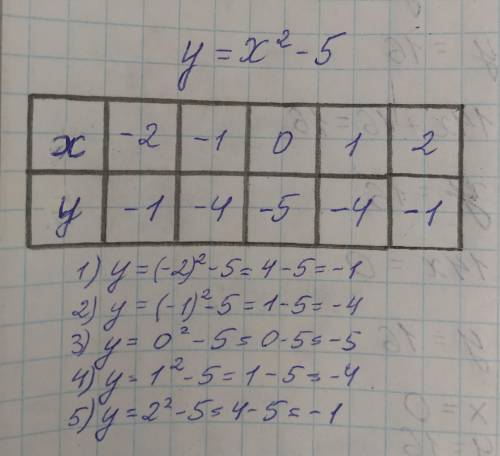 y = x² - 5
x -2 -1 0 1 2
y -1 -4 -5 -4 -1
1) y = (-2)² - 5 = 4 - 5 = -1
2) y = (-1)² - 5 = 1 - 5 = -4
3) y = 0² - 5 = 0 - 5 = -5
4) y = 1² - 5 = 1 - 5 = -4
5) y = 2² - 5 = 4 - 5 = -1